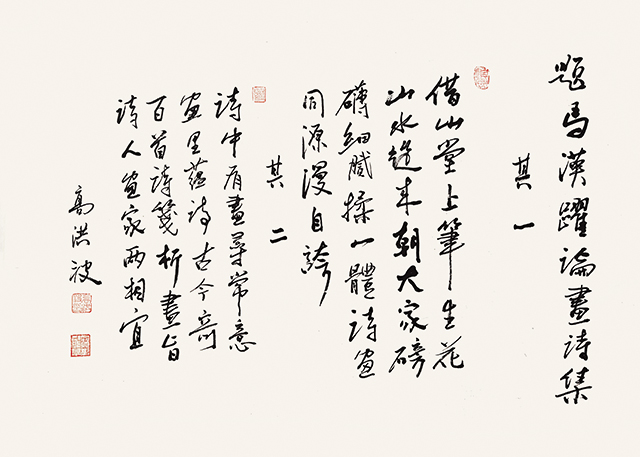 題馬漢躍論畫詩集
其一
借山堂上筆生花
山水造来朝大家磅
礴細膩揉一體詩画
同源漫自誇
其二
詩中有畫尋常意
画里蕴詩古今奇
百首詩箋析畫旨
詩人画家两相宜
高洪波